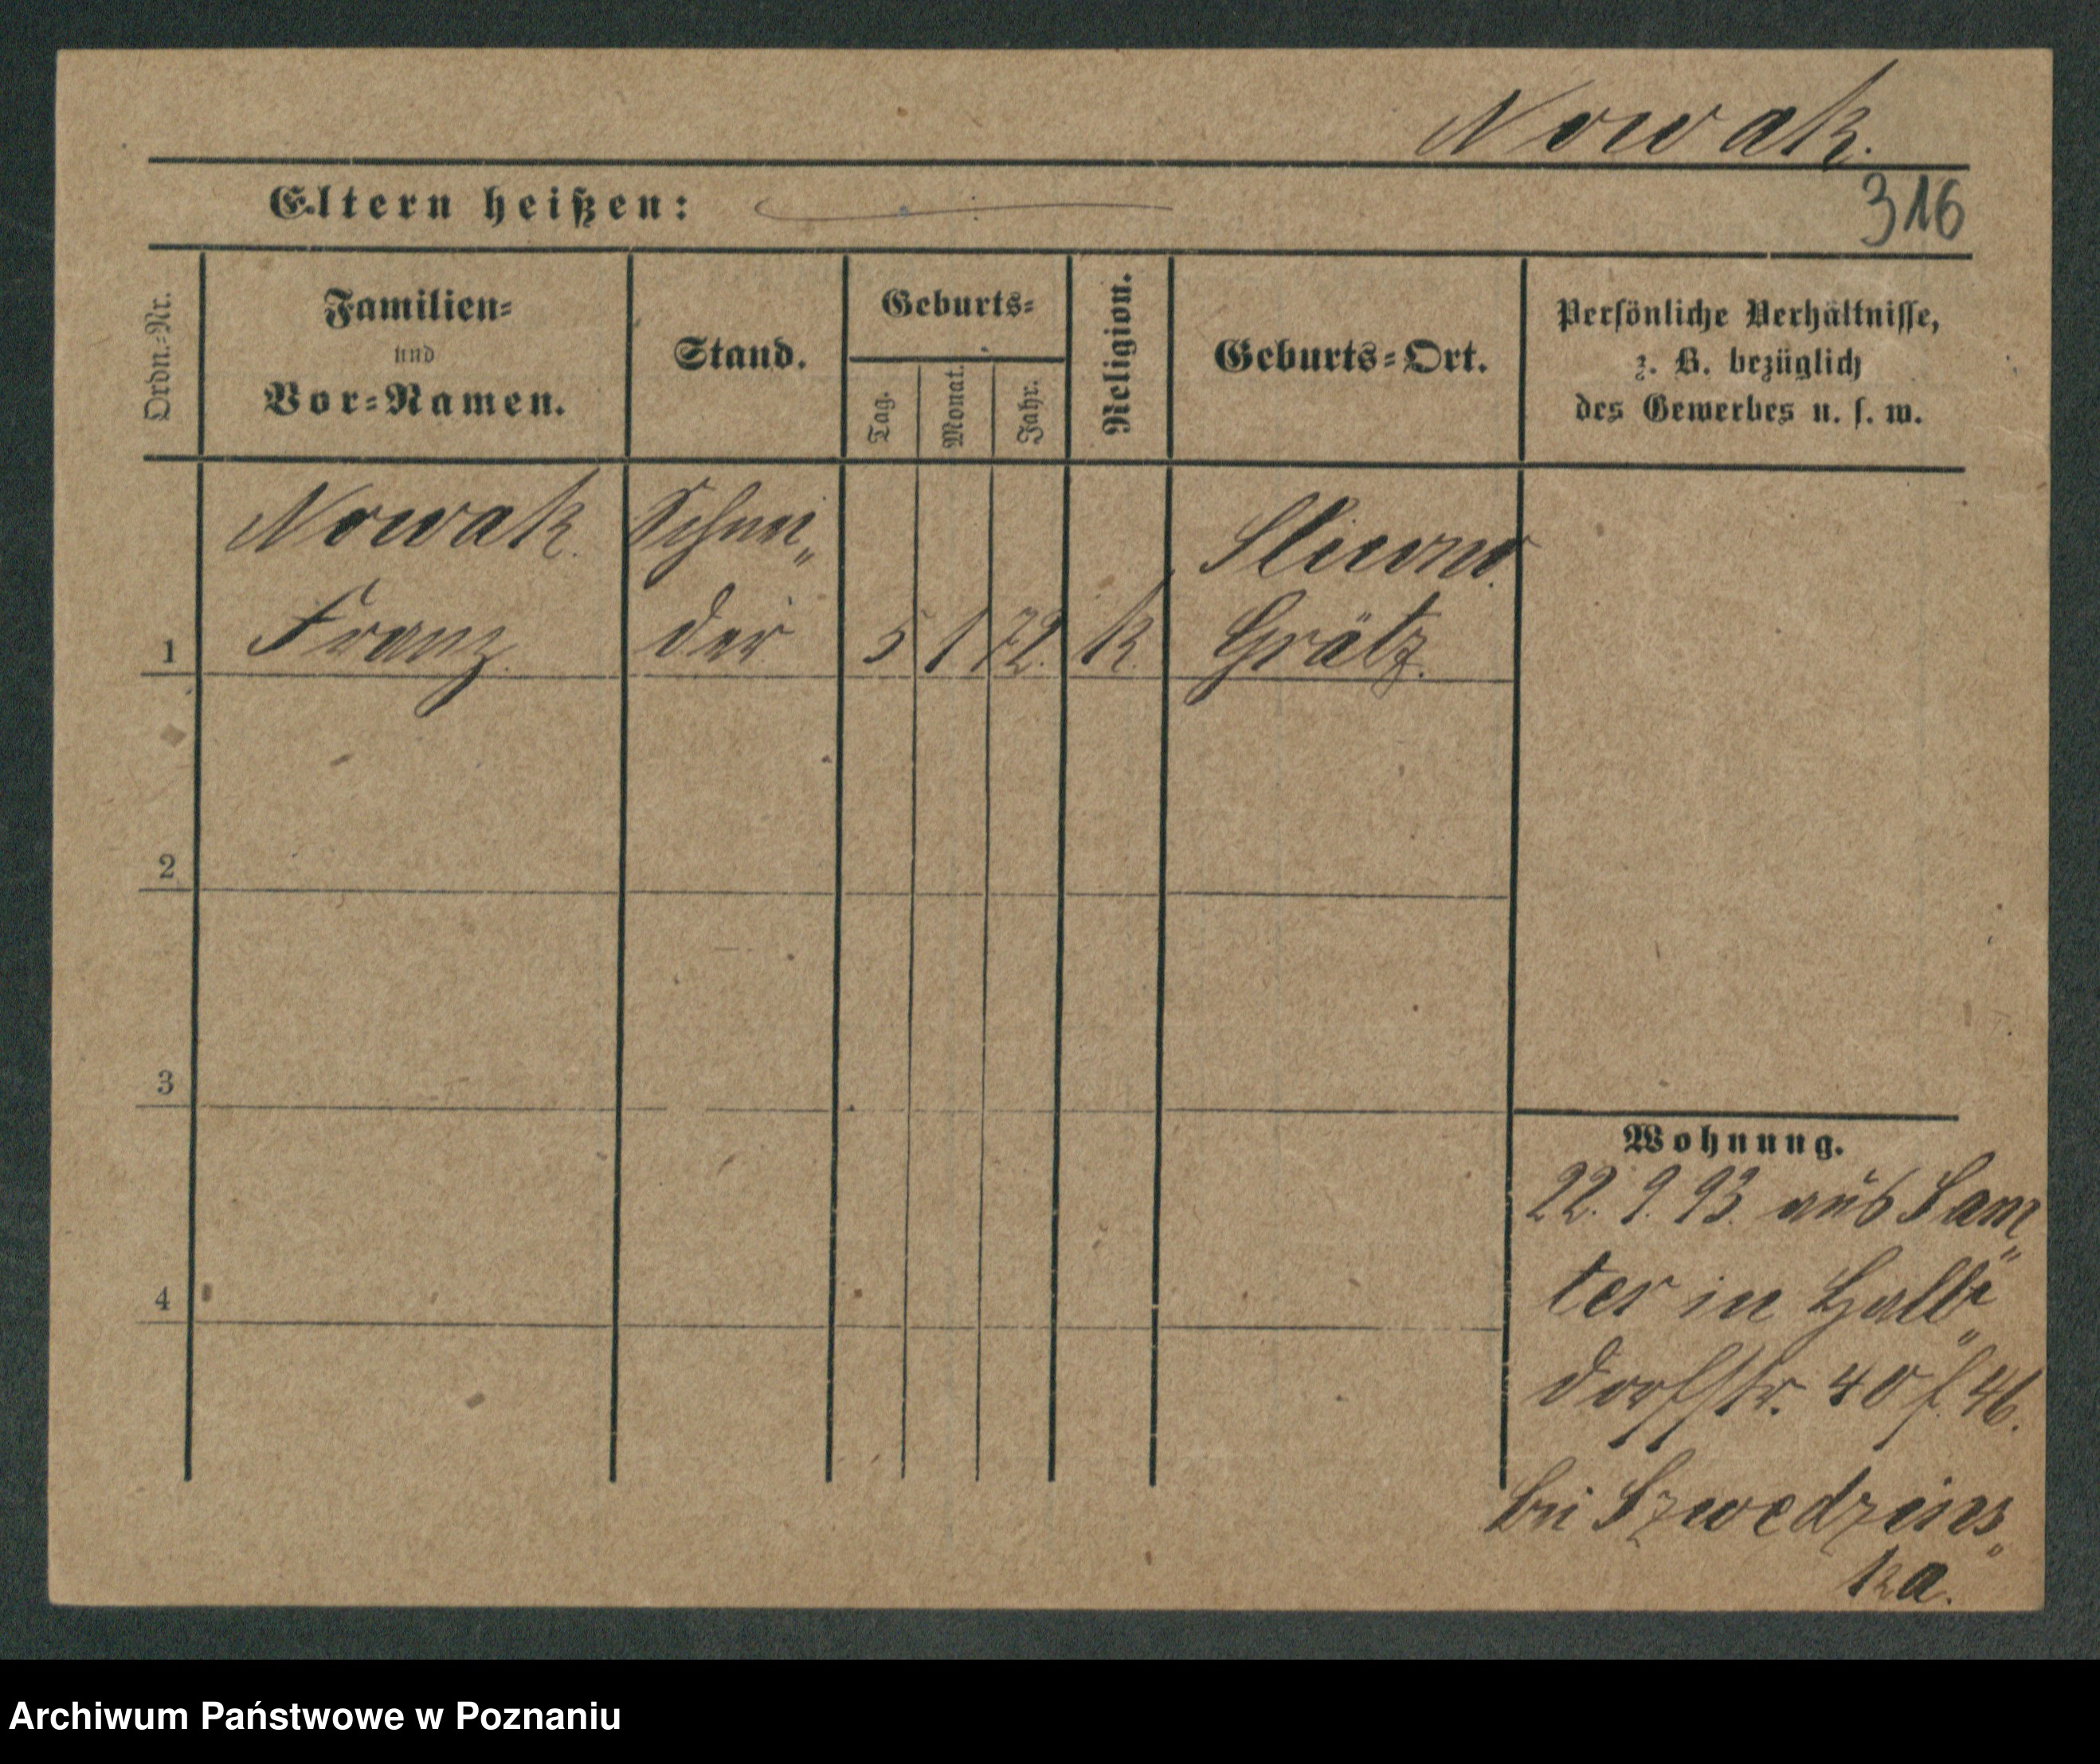 Nowak.
316
Eltern heißen:
Ordn.-Nr.
Familien-
und
Vor-Namen.
Stand.
Geburts-
Tag.
Monat.
Jahr.
Religion.
Geburts-Ort.
Persönliche Verhältnisse,
z. B. bezüglich
des Gewerbes u. s. w.
Nowak Schnei„
Franz der 5 1 72. k.
Grätz.
1
2
3
4
Wohnung.
22. 9. 93. aus Sam„
ter in Halb„
dorfstr. 40 f. 46.
bei Szwedzins„
ka.
Archiwum Państwowe w Poznaniu